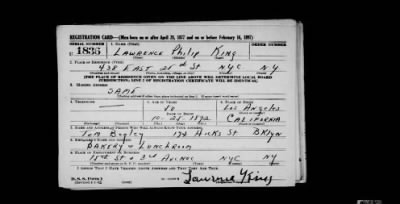 REGISTRATION CARD—(Men born on or after April 28, 1877 and on or before February 16, 1897)
SERIAL NUMBER 1. NAME (Print) ORDER NUMBER
U 1835 LAWRENCE Philip King
2. PLACE OF RESIDENCE (Print)
438 EAST 28th St NYC NY
[THE PLACE OF RESIDENCE GIVEN ON THE LINE ABOVE WILL DETERMINE LOCAL BOARD
JURISDICTION; LINE 2 OF REGISTRATION CERTIFICATE WILL BE IDENTICAL]
3. MAILING ADDRESS
SAME
4. TELEPHONE 5. AGE IN YEARS 6. PLACE OF BIRTH
50 Los Angeles
DATE OF BIRTH
10-25-1892 CALIFORNIA
7. NAME AND ADDRESS OF PERSON WHO WILL ALWAYS KNOW YOUR ADDRESS
Tom 174 St BKlyn
8. EMPLOYER'S NAME AND ADDRESS
BAKERY & LUNCHROOM
9. PLACE OF EMPLOYMENT OR BUSINESS
St & 3rd AVENUE NYC NY
I AFFIRM THAT I HAVE VERIFIED ABOVE ANSWERS AND THAT THEY ARE TRUE.
D. S. S. Form 1
Lawrence P King